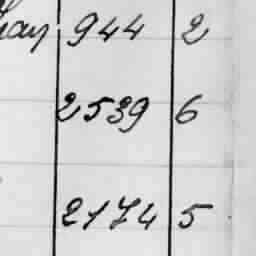 944 2
2539 6
2174 5